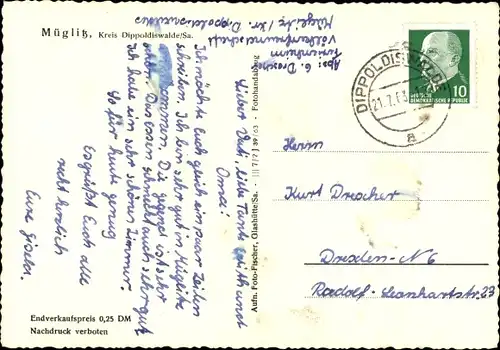 Müglitz, Kreis Dippoldiswalde/Sa.
Abs: G. Drescher
Müglitz / Kr. Dippoldiswalde
Lieber Vati, liebe Tante Edith und
Oma!
Ich möchte Euch gleich ein paar Zeilen
schreiben. Ich bin sehr gut in Müglitz
angekommen. Die Gegend ist sehr
schön. Das Essen schmeckt auch sehr gut.
Ich habe ein sehr schönes Zimmer.
So für heute genug
Es grüßt Euch alle
recht herzlich
Eure Gisela.
Endverkaufspreis 0,25 DM
Nachdruck verboten
Aufn. Foto-Fischer, Glashütte/Sa. - III 7/7 J 39/63 - Fotohandabzug
DIPPOLDISWALDE
a
10
DEUTSCHE
DEMOKRATISCHE REPUBLIK
Herrn
Kurt Drescher
Dresden-N6
Radolf-Leonhartstr. 23